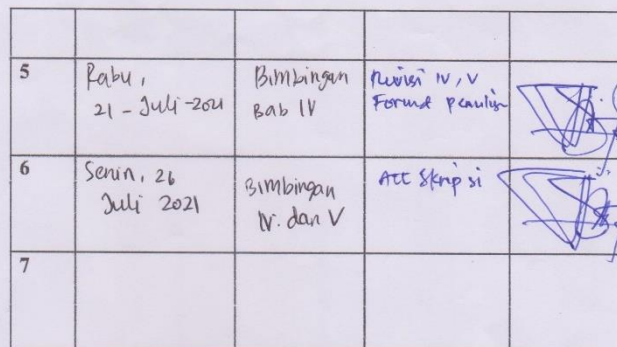 5
Rabu,
21 - Juli - 2021
Bimbingan
Bab IV
Revisi IV, V
Format penulisn
6
Senin, 26
Juli 2021
Bimbingan
IV. dan V
Acc Skripsi
7